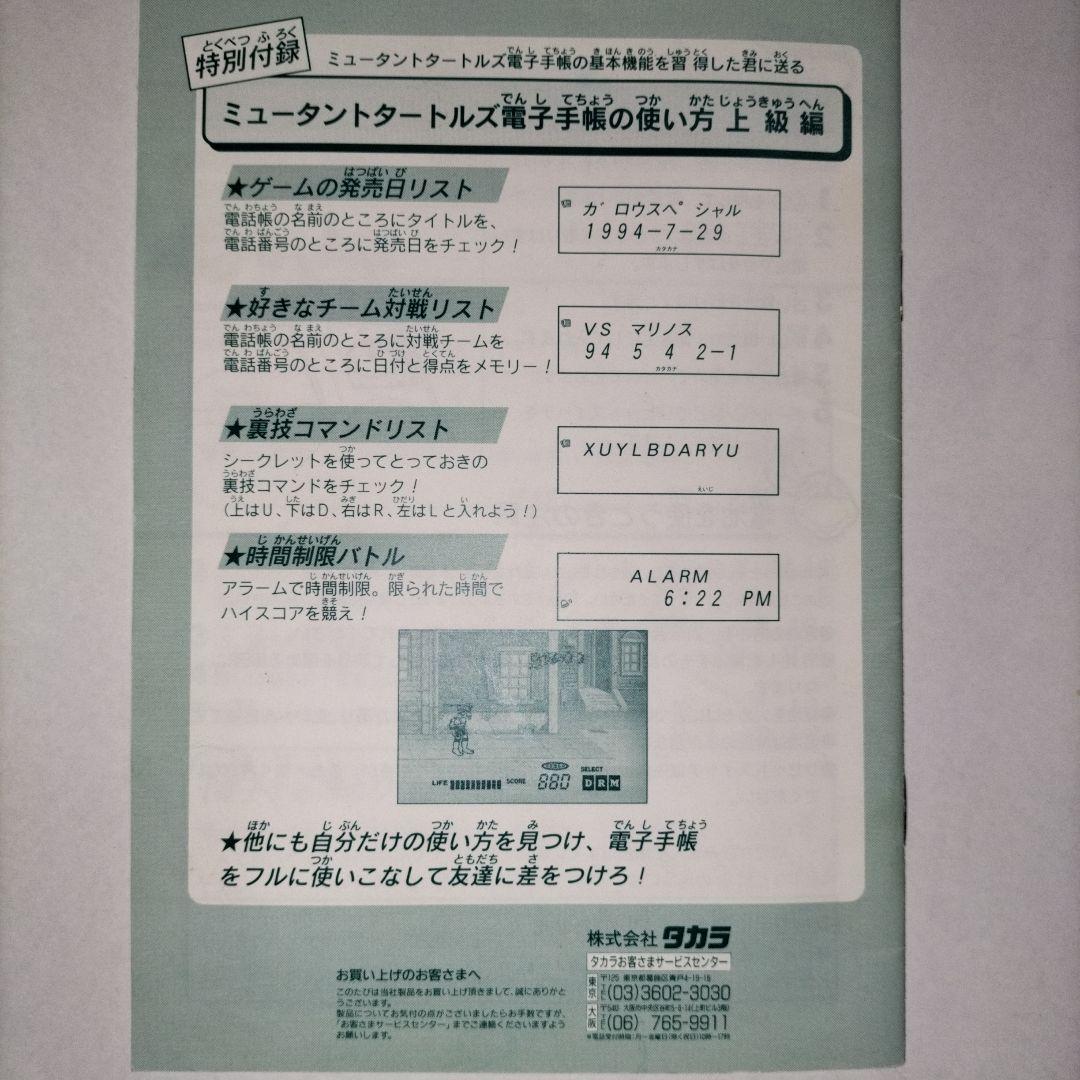 特別付録
ミュータントタートルズ電子手帳の基本機能を習得した君に送る
ミュータントタートルズ電子手帳の使い方上級編
★ゲームの発売日リスト
電話帳の名前のところにタイトルを、
電話番号のところに発売日をチェック！
ガロウスペシャル
1994-7-29
カタカナ
★好きなチーム対戦リスト
電話帳の名前のところに対戦チームを
電話番号のところに日付と得点をメモリー！
VS マリノス
94 5 4 2-1
カタカナ
★裏技コマンドリスト
シークレットを使ってとっておきの
裏技コマンドをチェック！
（上はU、下はD、右はR、左はLと入れよう！）
XUYLBDARYU
えいじ
★時間制限バトル
アラームで時間制限。限られた時間で
ハイスコアを競え！
ALARM
6:22 PM
LIFE SCORE 880 SELECT
DRM
★他にも自分だけの使い方を見つけ、電子手帳
をフルに使いこなして友達に差をつけろ！
株式会社タカラ
タカラお客さまサービスセンター
東京 〒125 東京都葛飾区青戸4-19-16
(03)3602-3030
大阪 〒540
(06) 765-9911
お買い上げのお客さまへ
このたびは当社製品をお買い上げ頂きまして、誠にありがと
うございます。
製品についてお気付の点がございましたらお手数ですが、
「お客さまサービスセンター」までご連絡くださいますよう
お願いします。